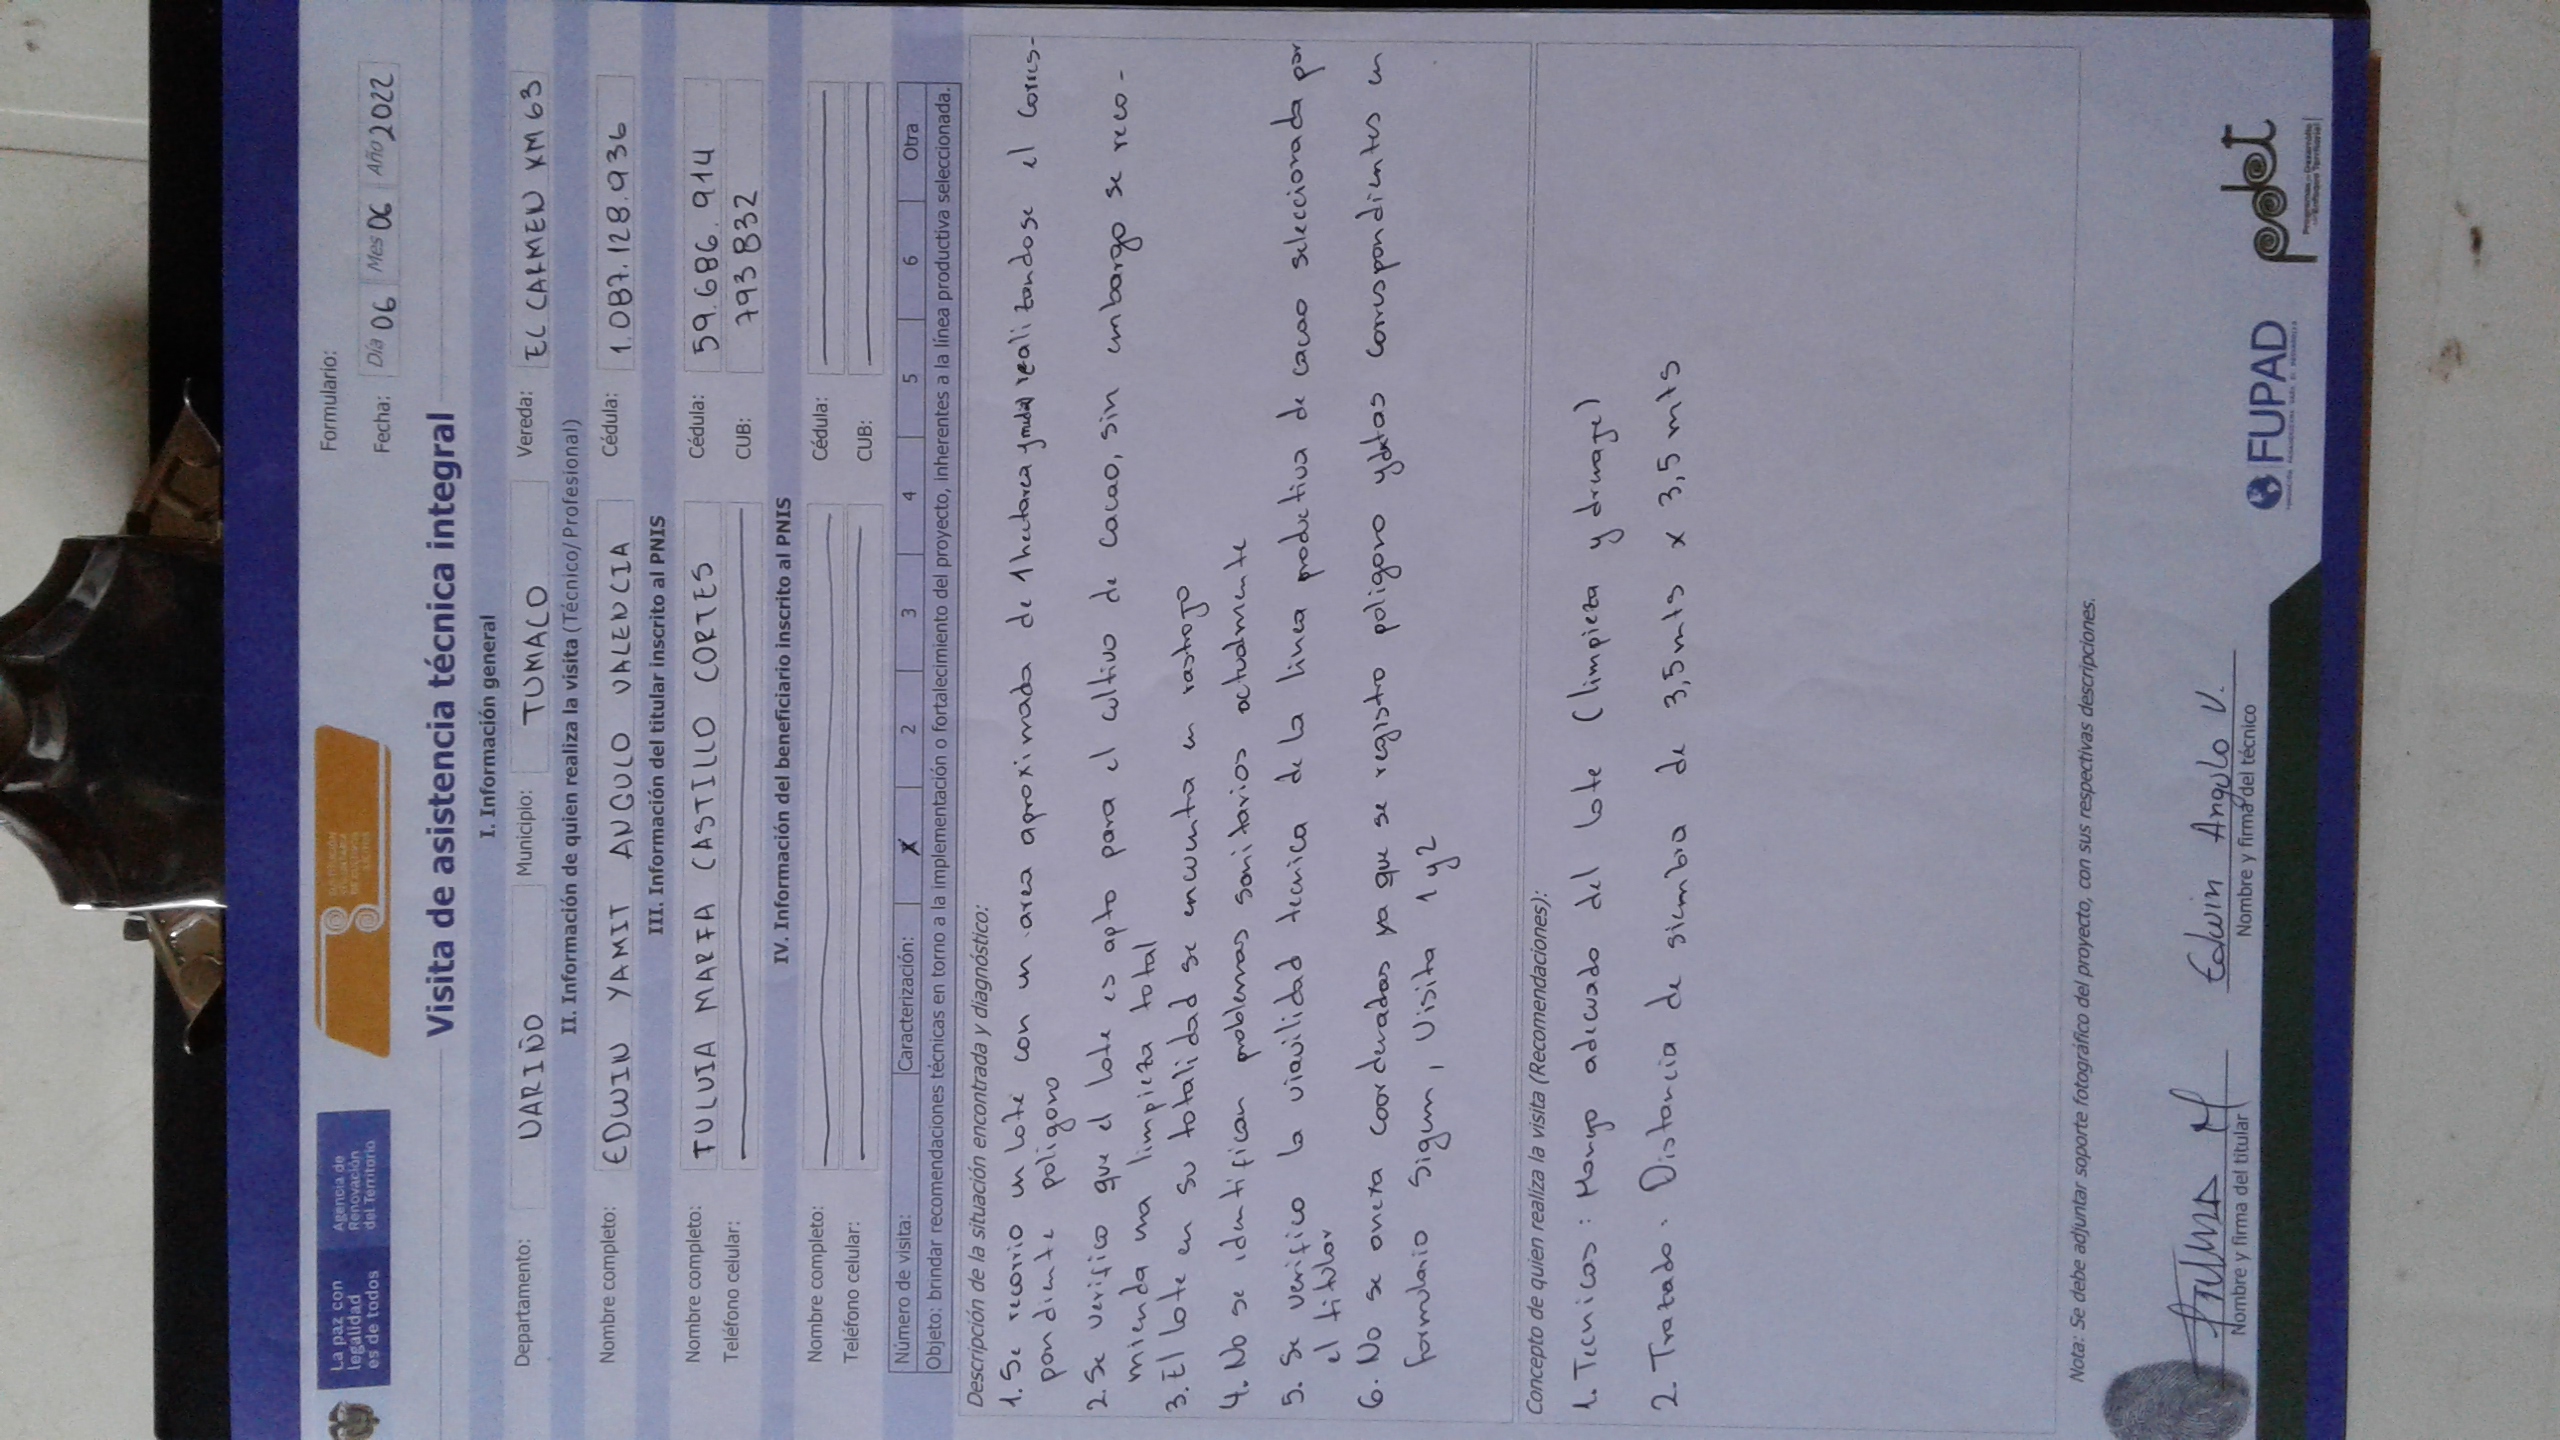 La paz con
legalidad
es de todos
Agencia de
Renovación
del Territorio
Formulario:
Fecha: Día 06 Mes 06 Año 2022
Visita de asistencia técnica integral
I. Información general
Departamento: NARIÑO Municipio: TUMACO Vereda: EL CARMEN KM 63
II. Información de quien realiza la visita (Técnico/Profesional)
Nombre completo: EDWIN YAMIT ANGULO VALENCIA Cédula: 1.087.128.936
III. Información del titular inscrito al PNIS
Nombre completo: FULVIA MARIA CASTILLO CORTES Cédula: 59.686.914
Teléfono celular: CUB: 793832
IV. Información del beneficiario inscrito al PNIS
Nombre completo: Cédula:
Teléfono celular: CUB:
Número de visita: Caracterización: X 2 3 4 5 6 Otra
Objeto: brindar recomendaciones técnicas en torno a la implementación o fortalecimiento del proyecto, inherentes a la línea productiva seleccionada.
Descripción de la situación encontrada y diagnóstico:
1. Se recorrio un lote con un area aproximada de 1 hectarea y realizandose el Corres-
pondiente poligono
2. Se verifico que el lote es apto para el cultivo de cacao, sin embargo se reco-
mienda una limpieza total
3. El lote en su totalidad se encuentra en rastrojo
4. No se identifican problemas sanitarios actualmente
5. Se verifico la viavilidad tecnica de la linea productiva de cacao seleccionada por
el titular
6. No se anexa coordenadas ya que se registro poligono y datos correspondientes en
formulario Sigum, Visita 1 y 2
Concepto de quien realiza la visita (Recomendaciones):
1. Tecnicos: Manejo adecuado del lote (limpieza y drenaje)
2. Trazado. Distancia de siembra de 3,5 mts x 3,5 mts
Nota: Se debe adjuntar soporte fotográfico del proyecto, con sus respectivas descripciones.
Edwin Angulo V.
Nombre y firma del titular Nombre y firma del técnico
FUPAD
pdet
Programas de Desarrollo
con Enfoque Territorial